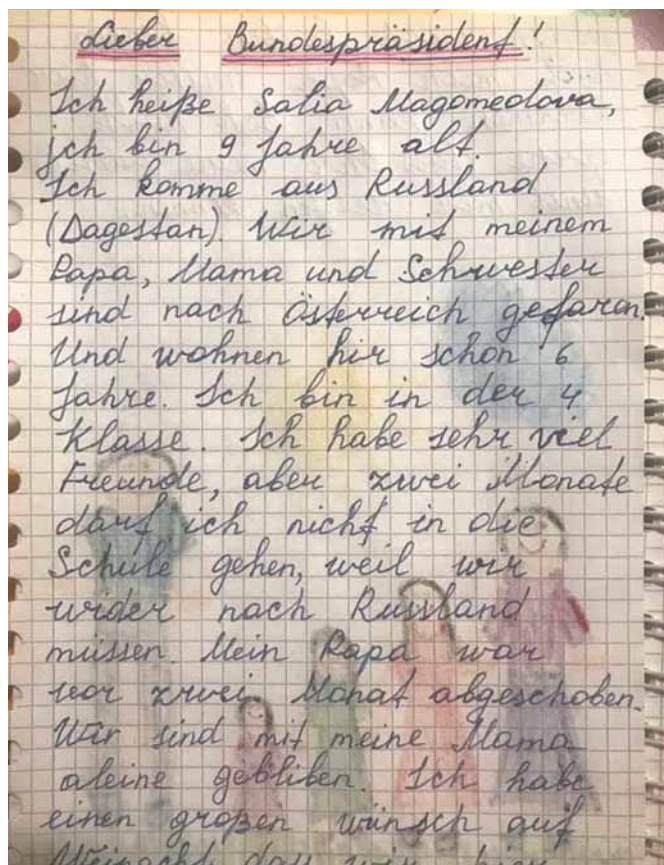 Lieber Bundespräsident!
Ich heiße Salia Magomedova,
ich bin 9 Jahre alt.
Ich komme aus Russland
(Dagestan). Wir mit meinem
Papa, Mama und Schwester
sind nach Österreich gefaren.
Und wohnen hir schon 6
Jahre. Ich bin in der 4
Klasse. Ich habe sehr viel
Freunde, aber zwei Monate
darf ich nicht in die
Schule gehen, weil wir
wider nach Russland
müssen. Mein Papa war
vor zwei Monat abgeschoben.
Wir sind mit meine Mama
aleine gebliben. Ich habe
einen großen wünsch auf
Weinacht das wir hier